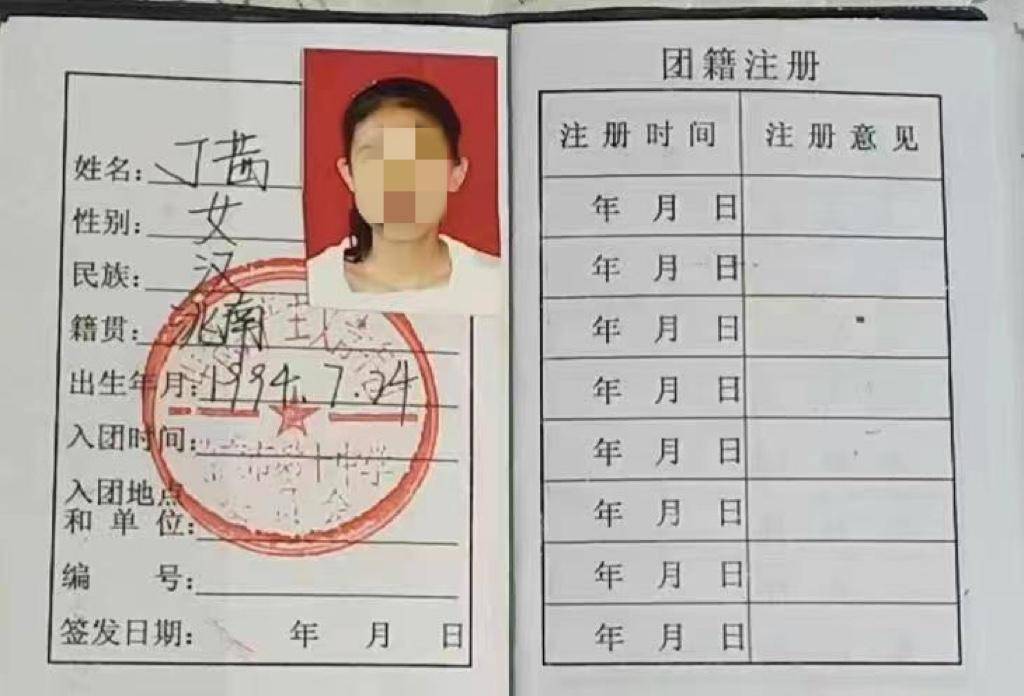 姓名：丁茜
性别：女
民族：汉
籍贯：
出生年月：1994.7.24
入团时间：
入团地点
和单位：
编 号：
签发日期： 年 月 日
团籍注册
注册时间 注册意见
年 月 日
年 月 日
年 月 日
年 月 日
年 月 日
年 月 日
年 月 日
年 月 日